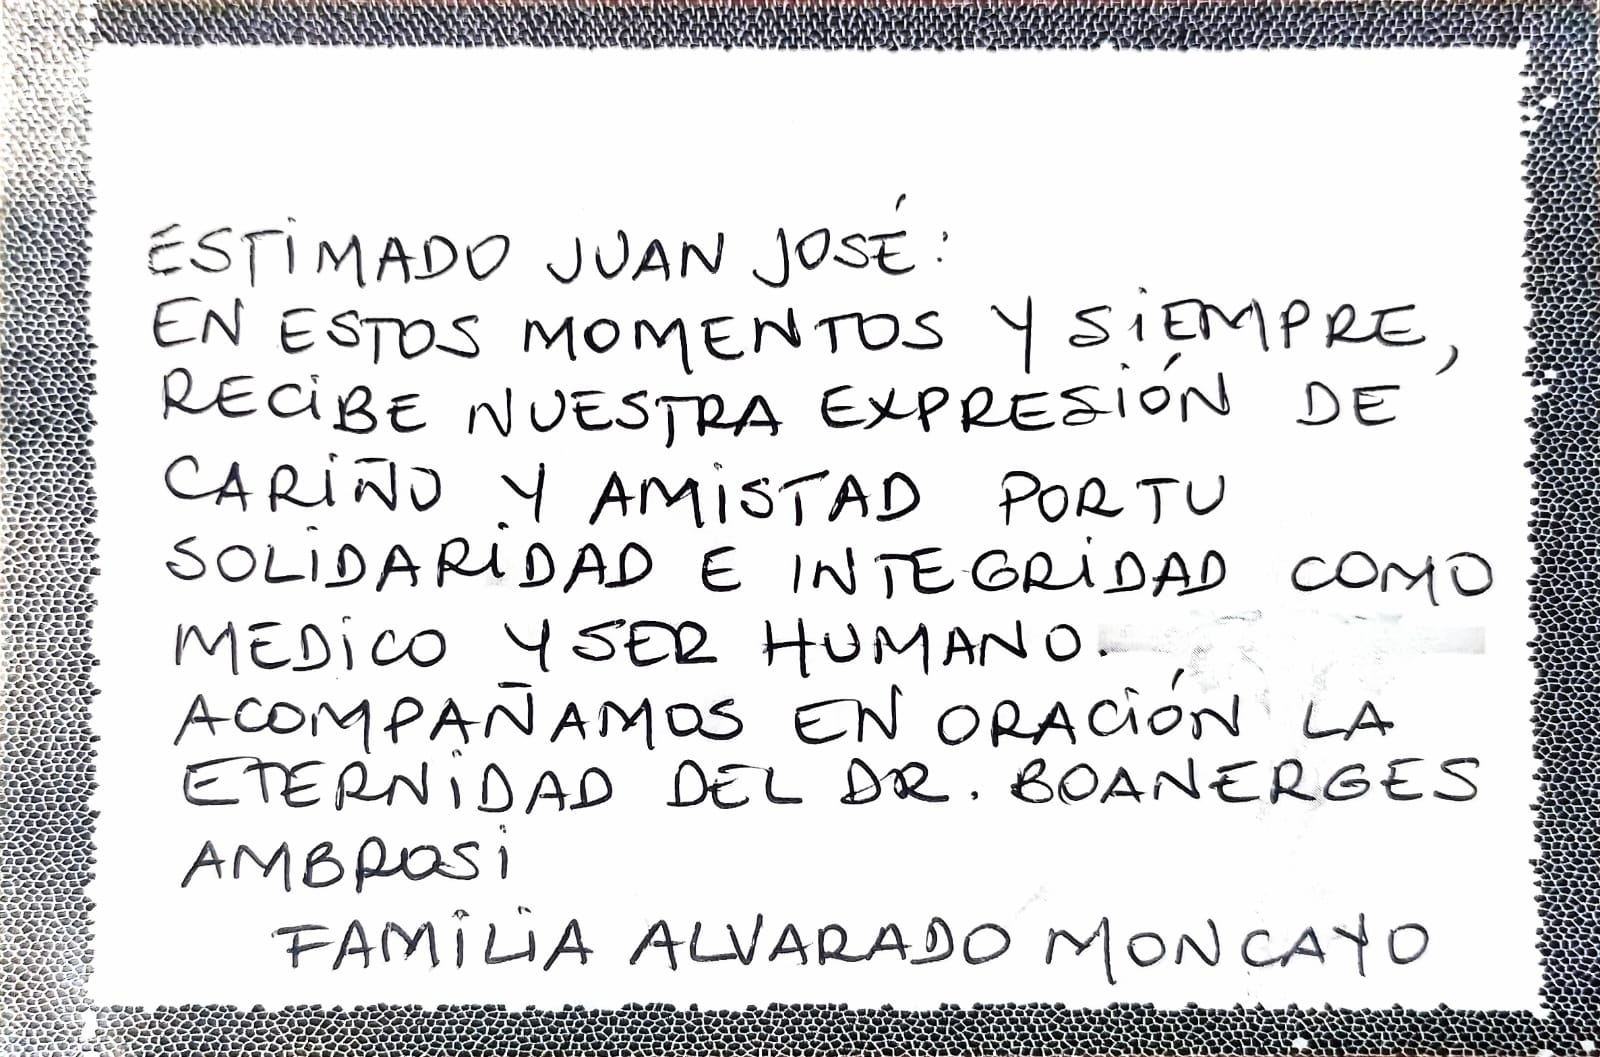 ESTIMADO JUAN JOSÉ:
EN ESTOS MOMENTOS Y SIEMPRE,
RECIBE NUESTRA EXPRESIÓN DE
CARIÑO Y AMISTAD POR TU
SOLIDARIDAD E INTEGRIDAD COMO
MEDICO Y SER HUMANO.
ACOMPAÑAMOS EN ORACIÓN LA
ETERNIDAD DEL DR. BOANERGES
AMBROSI
FAMILIA ALVARADO MONCAYO